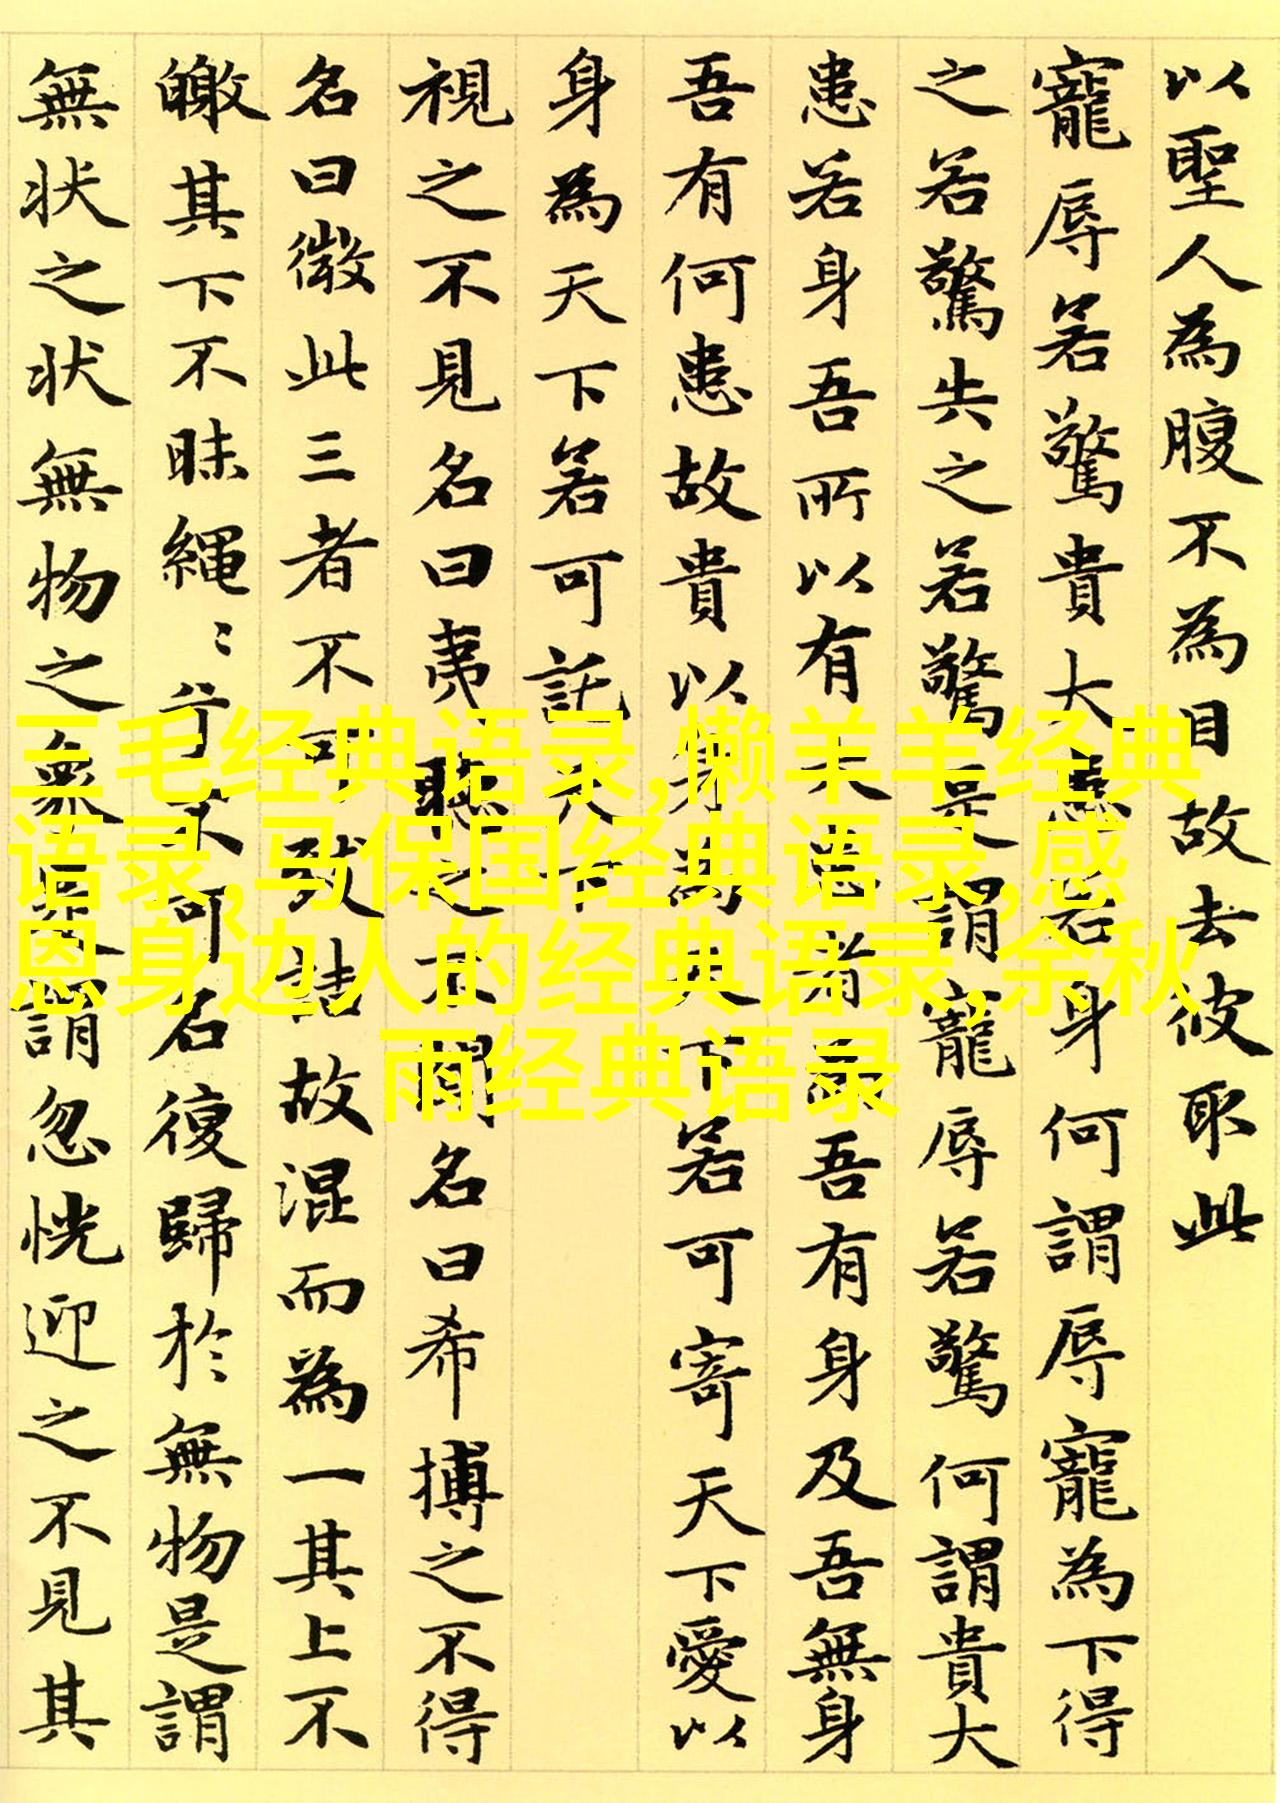 以聖人為腹不為目故去彼取此
寵辱若驚貴大患若身何謂辱寵為下得
之若驚失之若驚是謂寵辱若驚何謂貴大
患若身吾所以有大患者為吾有身及吾無身
吾有何患故貴以身為天下若可寄天下愛以
身為天下若可託天下
視之不見名曰夷聽之不聞名曰希搏之不得
名曰微此三者不可致詰故混而為一其上不
皦其下不昧繩〻兮不可名復歸於無物是謂
無状之状無物之象是謂忽恍迎之不見其
三毛经典语录,懒羊羊经典
语录,马保国经典语录,感
恩身边人的经典语录,余秋
雨经典语录